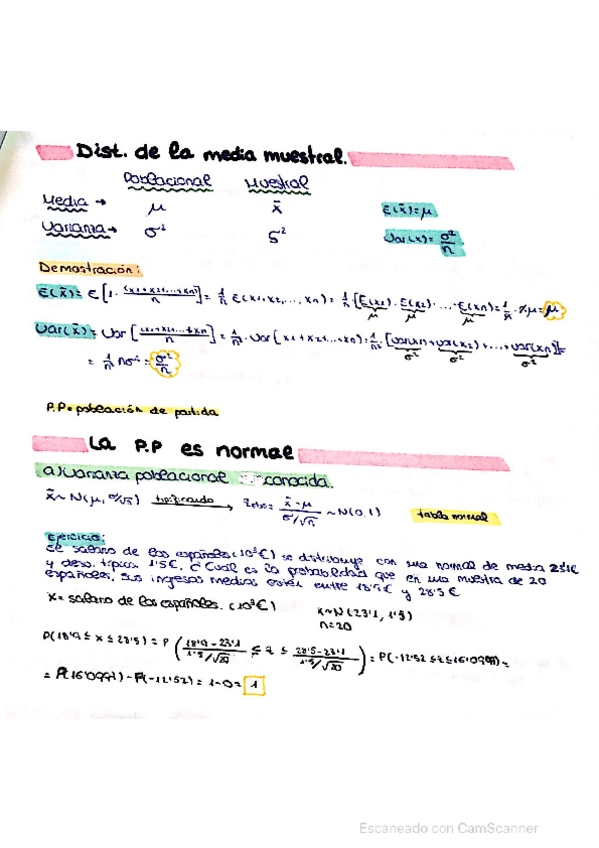 Dist. de la media muestral.
Poblacional Muestral
Media → μ x̄ E(x̄)=μ
Varianza → σ² S² Var(x̄)= σ²/n
Demostración:
E(x̄)= E[1·(x1+x2+...+xn)/n]= 1/n E(x1+x2,...,xn)= 1/n [E(x1)·E(x2)·...·E(xn)]= 1/n·n·μ= μ
μ μ μ
Var(x̄)= Var[(x1+x2+...+xn)/n]= 1/n²·Var(x1+x2+...+xn)= 1/n² [Var(x1)+Var(x2)+...+Var(xn)]=
σ² σ² σ²
= 1/n² nσ² = σ²/n
P.P = población de partida
La P.P es normal
a) Varianza poblacional conocida.
x̄ ~ N(μ, σ/√n) tipificando → = x̄-μ / σ/√n ~ N(0,1) tabla normal
Ejercicio:
El salario de los españoles (10³€) se distribuye con una normal de media 23'1€
y desv. típica 1'5€. ¿Cuál es la probabilidad que en una muestra de 20
españoles, sus ingresos medios estén entre 18'9€ y 28'5€
x = salario de los españoles. (10³€) x~N(23'1, 1'5)
n=20
P(18'9 ≤ x ≤ 28'5) = P( 18'9-23'1 / 1'5/√20 ≤ z ≤ 28'5-23'1 / 1'5/√20 ) = P(-12'52 ≤ z ≤ 16'0997)=
= F(16'0997) - F(-12'52) = 1-0= 1
Escaneado con CamScanner